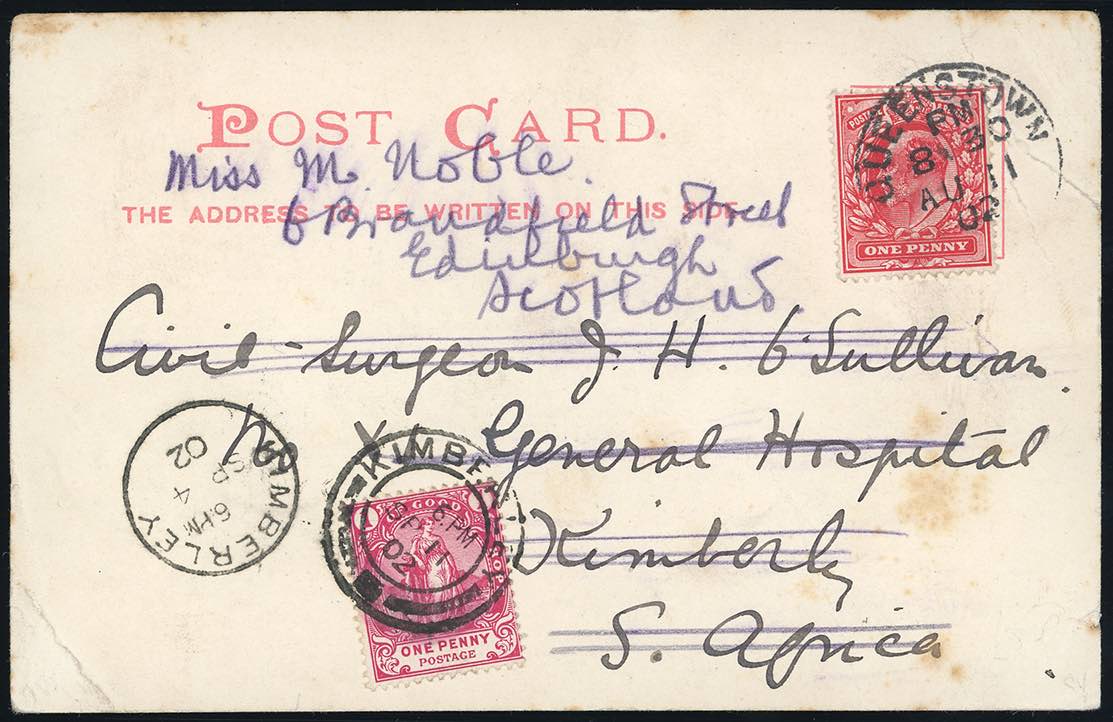 POST CARD.
Miss M. Noble.
THE ADDRESS TO BE WRITTEN ON THIS SIDE
6 Brandfield Street
Edinburgh
Scotland.
QUEENSTOWN
PM
8 30
AU 11
02
POSTAGE
ONE PENNY
Civil-Surgeon J. H. O'Sullivan.
No X General Hospital
Kimberly
S. Africa
KIMBERLEY
6 PM
SP 4
02
KIMBERLEY
6. PM
SP 11
02
OF GOOD HOPE
ONE PENNY
POSTAGE